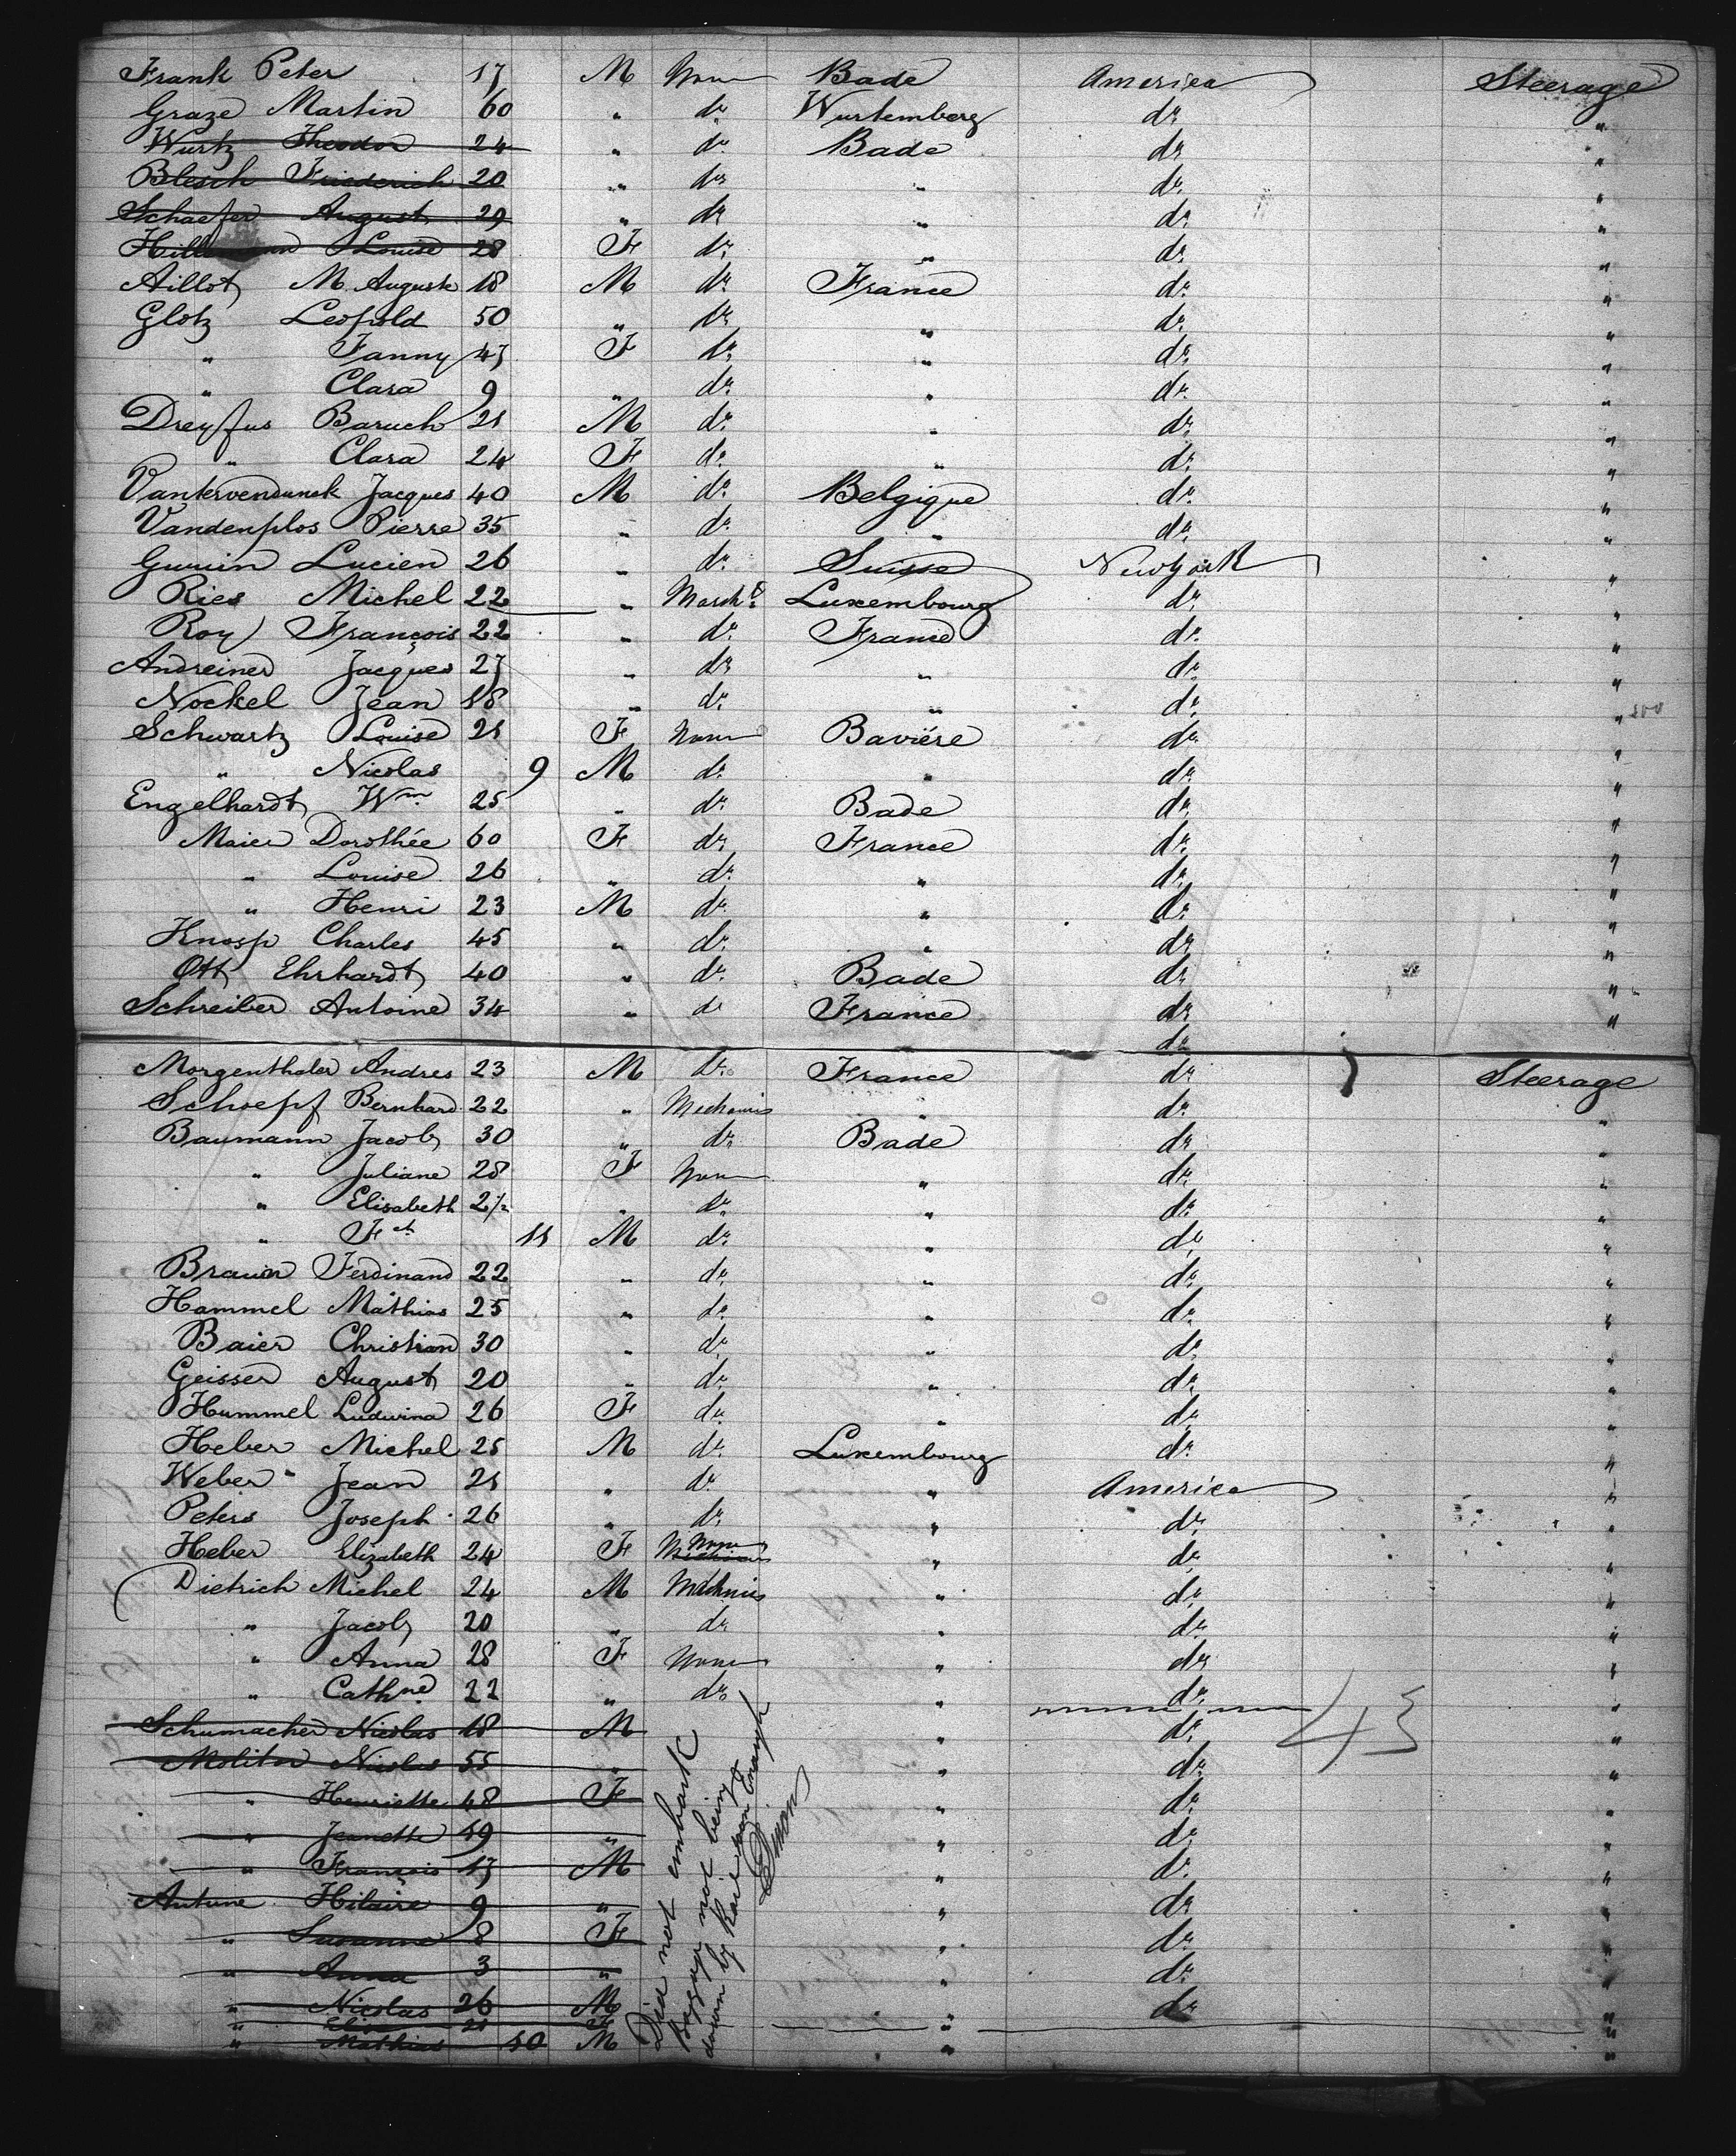 Frank Peter 17 M None Bade America Steerage
Graze Martin 60 " do Wurtemberg do "
Wurtz Theodor 24 " do Bade do "
Blesch Friederich 20 " do " do "
Schaefer August 29 " do " do "
Louise 28 F do " do "
Aillot M. Auguste 18 M do France do "
Glotz Leopold 50 " do " do "
" Fanny 47 F do " do "
" Clara 9 " do " do "
Dreyfus Baruch 21 M do " do "
" Clara 24 F do " do "
Jacques 40 M do Belgique do "
Vandenplos Pierre 35 " do " do "
Lucien 26 " do Suisse Newyork "
Ries Michel 22 " Marchd Luxembourg do "
Roy François 22 " do France do "
Andreiner Jacques 27 " do " do "
Nockel Jean 18 " do " do " 200
Schwartz Louise 21 F None Baviére do "
" Nicolas 9 M do " do "
Engelhardt Wm 25 " do Bade do "
Maier Dorothée 60 F do France do "
" Louise 26 " do " do "
" Henri 23 M do " do "
Knosp Charles 45 " do " do "
Ott Ehrhardt 40 " do Bade do "
Schreiber Antoine 34 " do France do "
do
Morgenthaler Andres 23 M do France do Steerage
Schoepf Bernhard 22 " Mechanic " do "
Baumann Jacob 30 " do Bade do "
" Juliane 28 F None " do "
" Elisabeth 2½ " do " do "
" Fch 11 M do " do "
Brauer Ferdinand 22 " do " do "
Hammel Mathias 25 " do " do "
Baier Christian 30 " do " do "
Geisser August 20 " do " do "
Hummel Ludwina 26 F do " do "
Heber Michel 25 M do Luxembourg do "
Weber Jean 21 " do " America "
Peters Joseph 26 " do " do "
Heber Elizabeth 24 F None " do "
Dietrich Michel 24 M Mechnics " do "
" Jacob 20 " do " do "
" Anna 28 F None " do "
" Cathne 22 " do " do "
Schumacher Nicolas 18 M " do " 43
Molitor Nicolas 55 " " do "
" Henriette 48 F " do "
" Jeanette 19 " " do "
" Francois 17 M " do "
Antune Hilaire 9 " " do "
" Susanne 8 F " do "
" Anna 3 " " do "
" Nicolas 26 M " do "
" 21 F " "
" Mathias 10 M " "
Did not embark
Baggage not being
down by Rail soon Enough
Simon